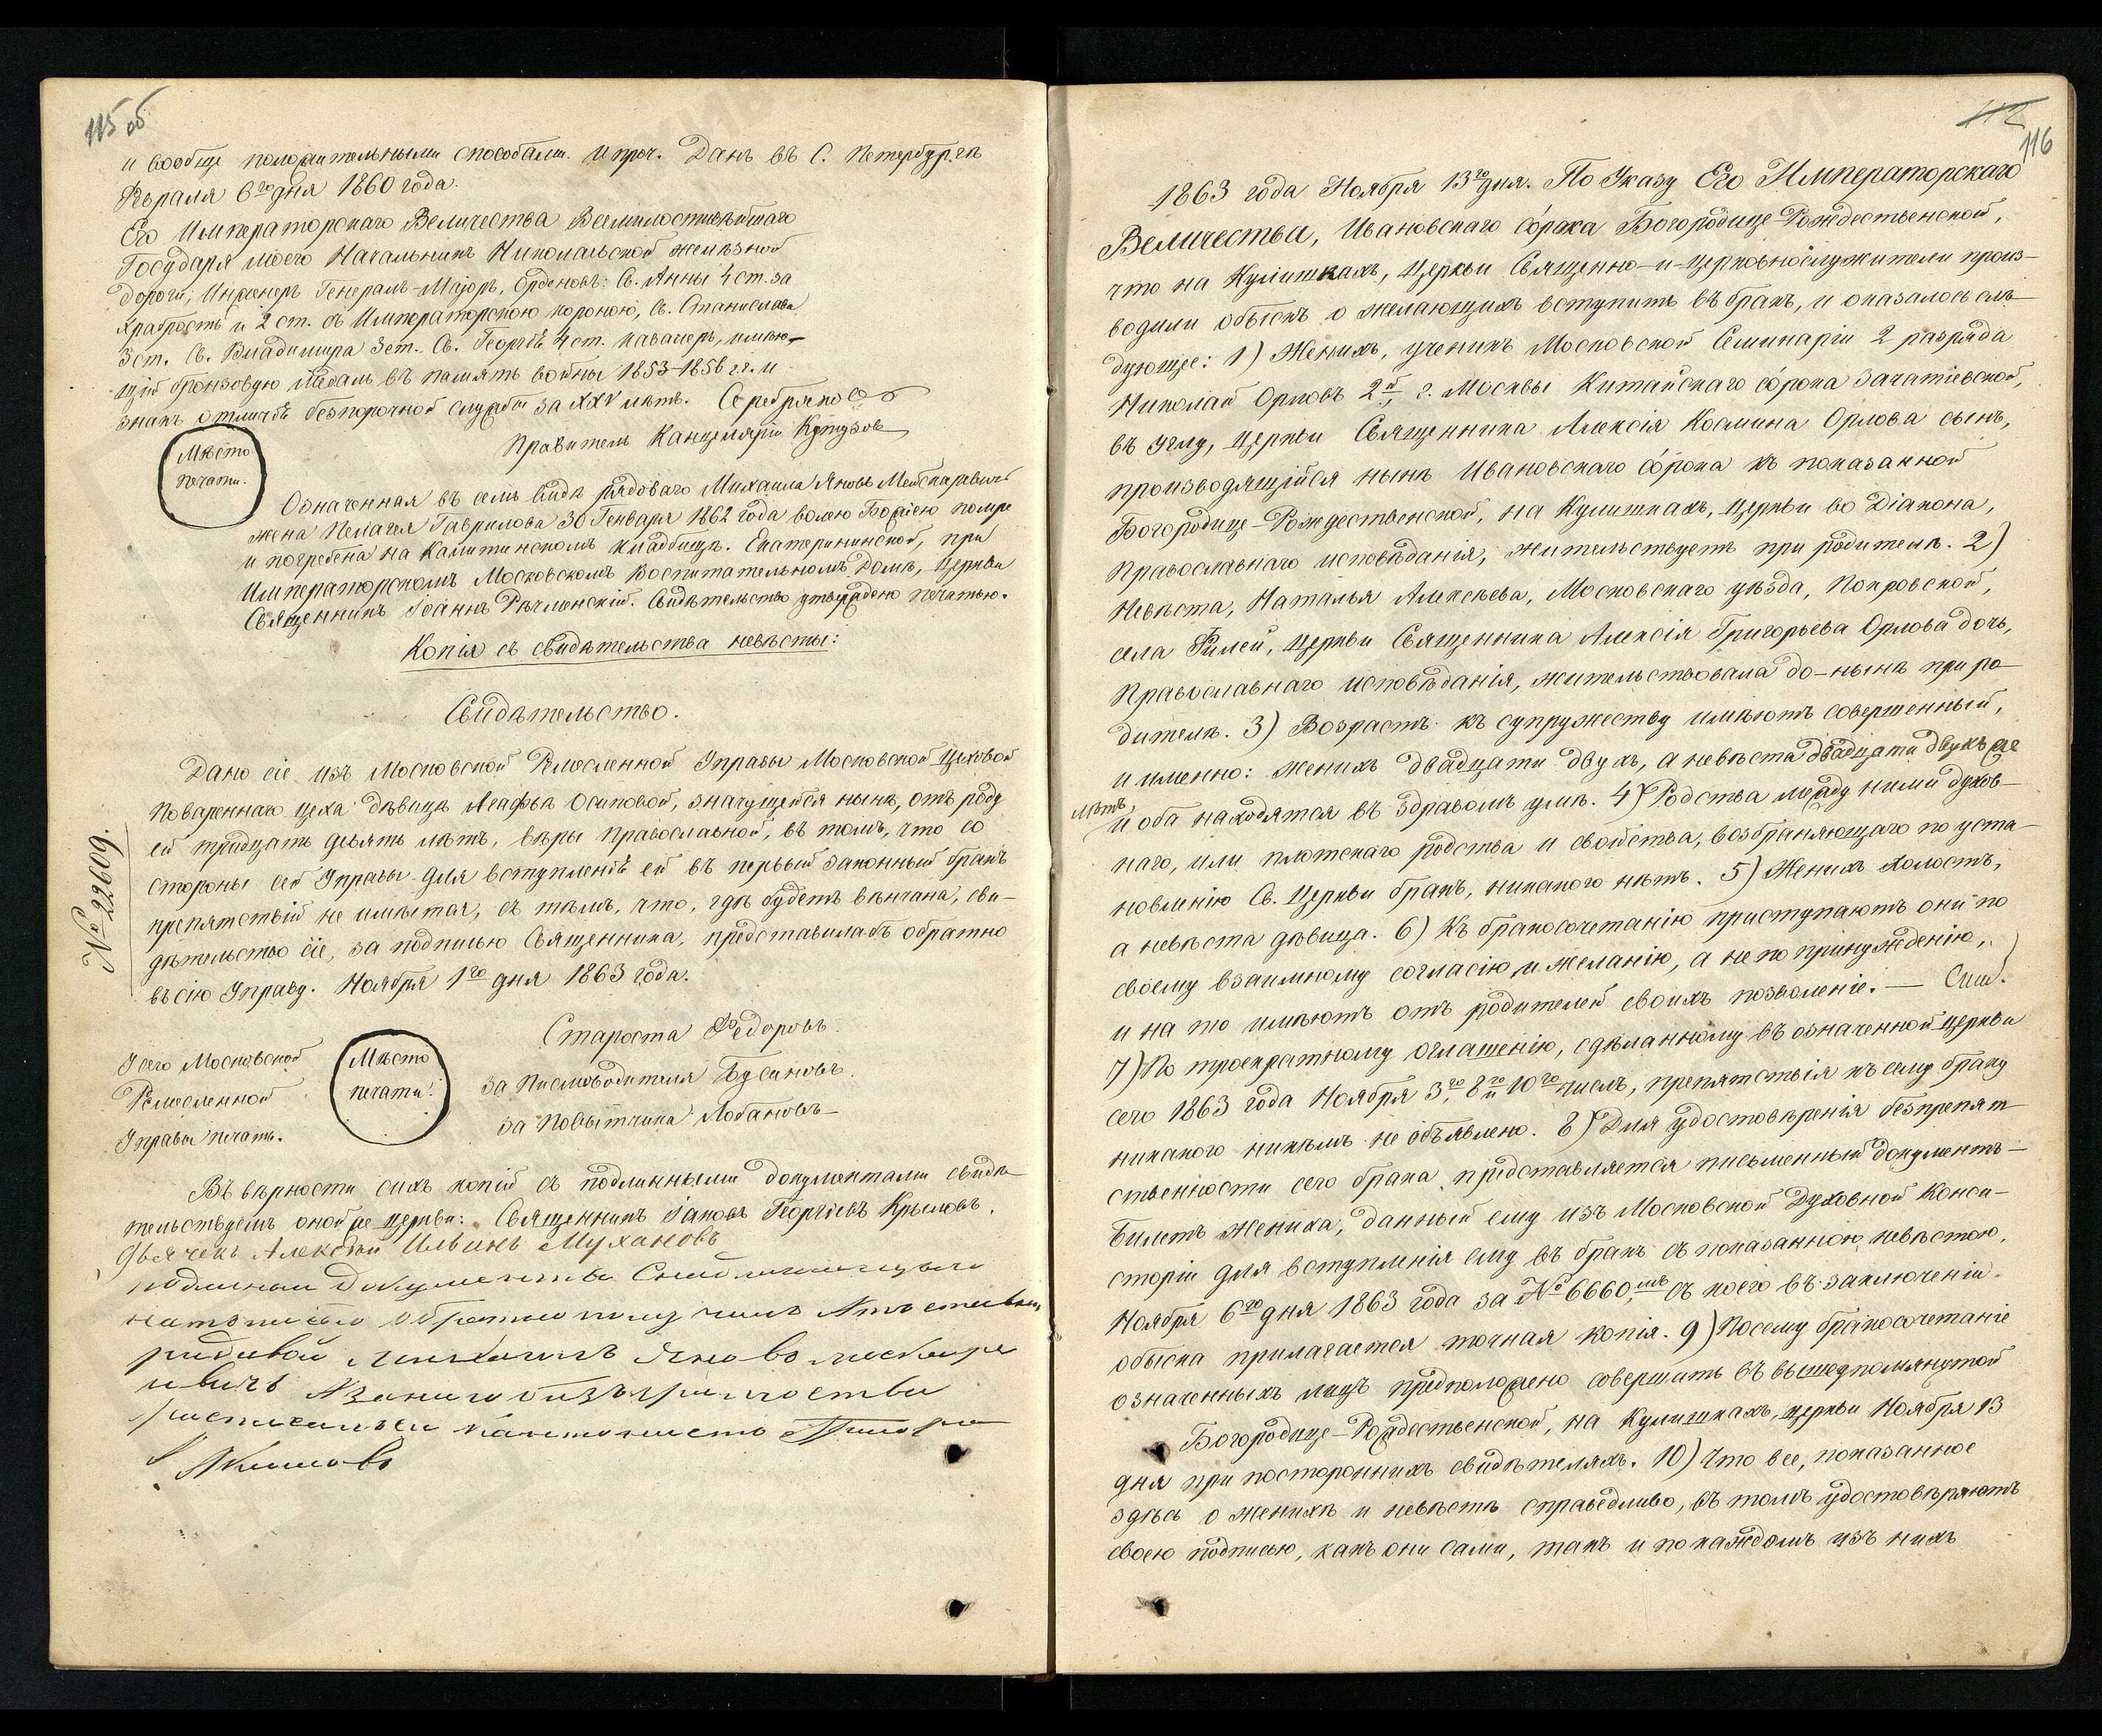 115 об
и вообще положительными способами. И проч. Данъ въ С. Петербургѣ
Февраля 6го дня 1860 года.
Его Императорскаго Величества Всемилостивѣйшаго
Государя моего Начальникъ Николаевской желѣзной
дороги, Инженеръ Генералъ-Маіоръ, Орденовъ: Св. Анны 4 ст. за
храбрость и 2 ст. съ Императорскою короною, Св. Станислава
3 ст. Св. Владимира 3 ст. Св. Георгія 4 ст. кавалеръ, имѣю-
щій бронзовую медаль въ память войны 1853-1856 гг. и
знакъ отличія безпорочной службы за XXV лѣтъ. Серебряковъ
Правитель Канцеляріи Кутузовъ
Мѣсто
печати.
Означенная въ семъ видѣ рядоваго Михаила Яновъ
жена Пелагея Гаврилова 30 Генваря 1862 года волею Божіею помре
и погребена на Калитинскомъ кладбищѣ. Екатерининской, при
Императорскомъ Московскомъ Воспитательномъ Домѣ, Церкви
Священникъ Іоаннъ. Свидѣтельство утверждено печатью.
Копія съ свидѣтельства невѣсты:
Свидѣтельство.
Дано сіе изъ Московской Ремесленной Управы Московской Цеховой
Повареннаго цеха дѣвицѣ Агафьѣ Осиповой, значущейся нынѣ, отъ роду
ей тридцать девять лѣтъ, вѣры Православной, въ томъ, что со
стороны сей Управы для вступленія ей въ первый законный бракъ
препятствій не имѣется, съ тѣмъ, что, гдѣ будетъ вѣнчана, сви-
дѣтельство сіе, за подписью Священника, представилабъ обратно
въ сію Управу. Ноября 1го дня 1863 года.
№ 22609.
Староста Ѳедоровъ.
У сего Московской
Ремесленной
Управы печать.
Мѣсто
печати!
за Писмоводителя Бусиновъ.
за Повытчика Лобановъ
Въ вѣрности сихъ копій съ подлинными документами свидѣ-
тельствуемъ оной же церкви: Священникъ Іаковъ Георгіевъ Крыловъ.
Дьячекъ Алексѣй Ильинъ Мухановъ
подлинныи документы
обратно получилъ
рядовой Яновъ
росписался
Акимовъ
112
116
1863 года Ноября 13го дня. По Указу Его Императорскаго
Величества, Ивановскаго со́рока Богородице-Рождественской,
что на Кулишкахъ, Церкви Священно-и-церковнослужители произ-
водили обыскъ о желающихъ вступить въ бракъ, и оказалось слѣ-
дующее: 1) Женихъ, ученикъ Московской Семинаріи 2 разряда
Николай Орловъ 2й, г. Москвы Китайскаго со́рока Зачатіевской,
въ углу, церкви Священника Алексія Космина Орлова сынъ,
производящійся нынѣ Ивановскаго со́рока къ показанной
Богородице-Рождественской, на Кулишкахъ, церкви во Діакона,
Православнаго исповѣданія, жительствуетъ при родителѣ. 2)
Невѣста, Наталья Алексѣева, Московскаго уѣзда, Покровской,
села Филей, церкви Священника Алексія Григорьева Орлова дочь,
Православнаго исповѣданія, жительствовала до-нынѣ при ро-
дителѣ. 3) Возрастъ къ супружеству имѣютъ совершенный,
и именно: женихъ двадцати двухъ, а невѣста двадцати двухъ же
лѣтъ,
и оба находятся въ здравомъ умѣ. 4) Родства между ними духов-
наго, или плотскаго родства и свойства, возбраняющаго по уста-
новленію Св. Церкви бракъ, никакого нѣтъ. 5) Женихъ холостъ,
а невѣста дѣвица. 6) Къ бракосочетанію приступаютъ они по
своему взаимному согласію и желанію, а не по принужденію,
и на то имѣютъ отъ родителей своихъ позволеніе. —
7) По троекратному оглашенію, сдѣланному въ означенной церкви
сего 1863 года Ноября 3го, 8го и 10го числъ, препятствія къ сему браку
никакого никѣмъ не объявлено. 8) Для удостовѣренія безпрепят-
ственности сего брака представляется письменный документъ—
Билетъ жениха, данный ему изъ Московской Духовной Конси-
сторіи для вступленія ему въ бракъ съ показанною невѣстою,
Ноября 6го дня 1863 года за № 6660мъ, съ коего въ заключеніи
обыска прилагается точная копія. 9) Посему бракосочетаніе
означенныхъ лицъ предположено совершить въ вышеупомянутой
Богородице-Рождественской, на Кулишкахъ, церкви Ноября 13
дня при постороннихъ свидѣтеляхъ. 10) Что все, показанное
здѣсь о женихѣ и невѣстѣ справедливо, въ томъ удостовѣряютъ
своею подписью, какъ они сами, такъ и по каждомъ изъ нихъ